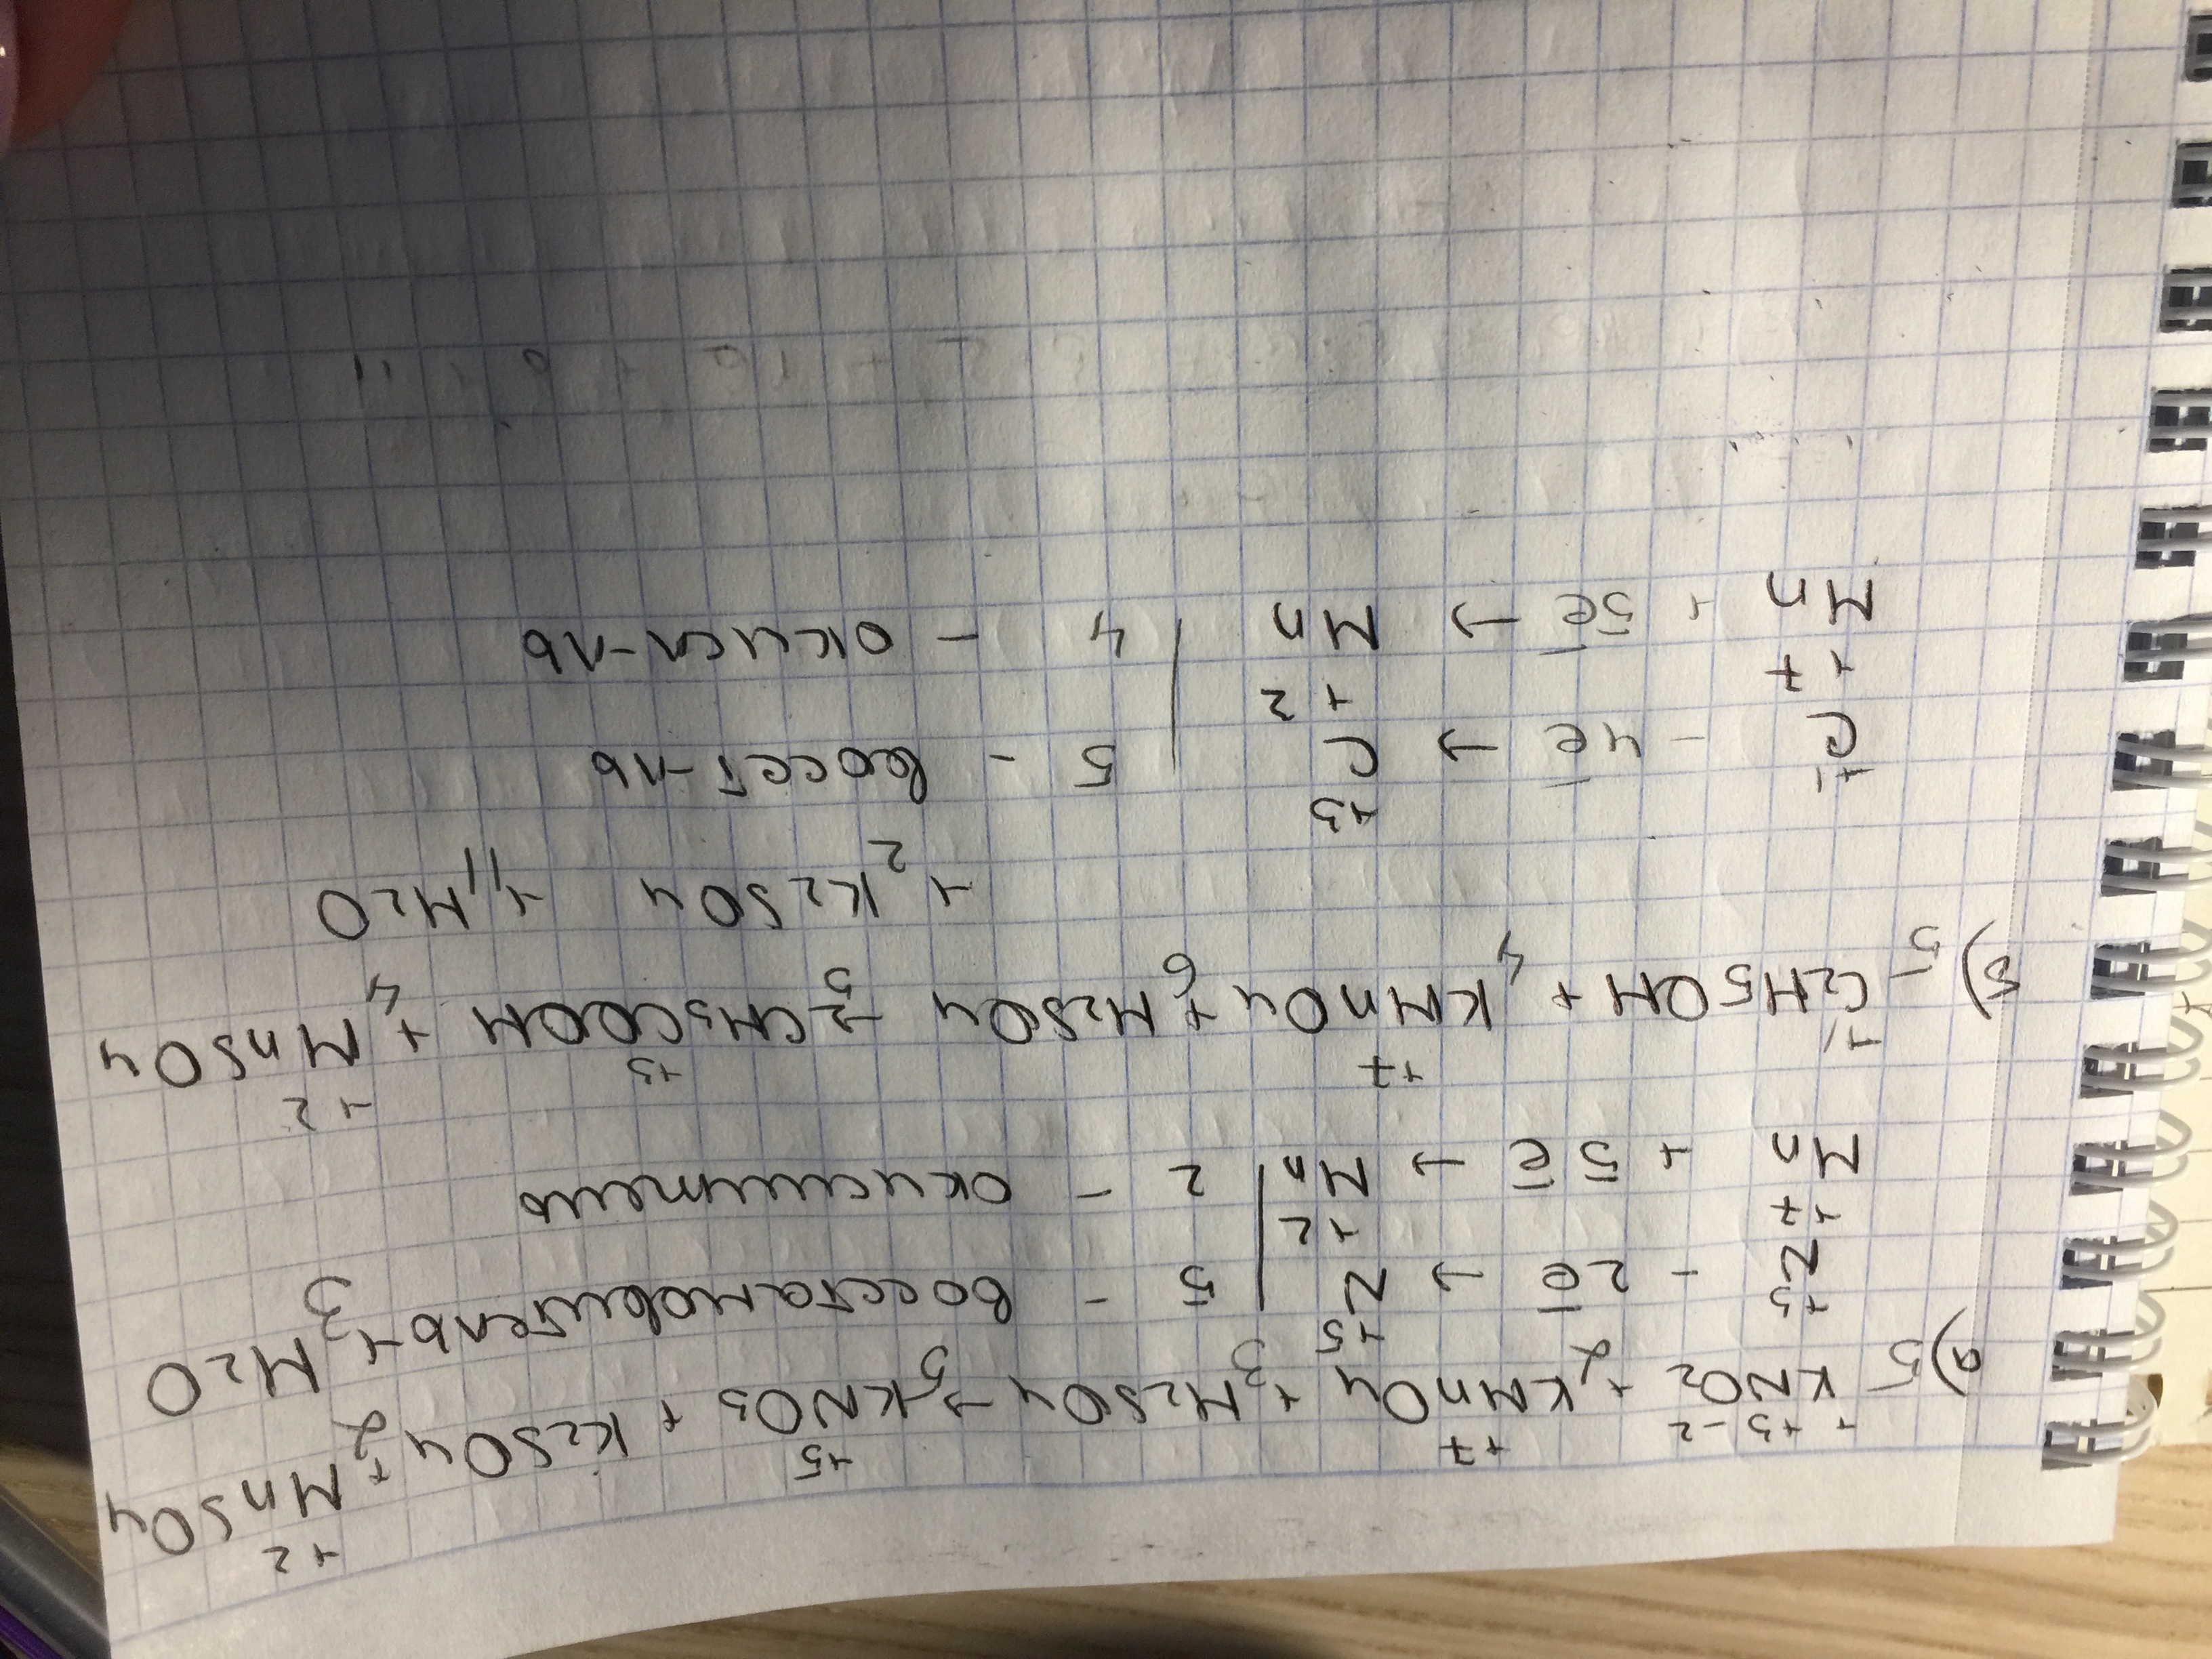 + +3 -2 +7 +5 +2
а) 5 KNO2 + 2 KMnO4 + 3 H2SO4 → 5 KNO3 + K2SO4 + 2 MnSO4 + 3 H2O
+3 +5
N - 2e̅ → N | 5 - восстановитель
+7 +2
Mn + 5e̅ → Mn | 2 - окислитель
-1 +7 +3 +2
б) 5 C2H5OH + 4 KMnO4 + 6 H2SO4 → 5 CH3COOH + 4 MnSO4
+ 2 K2SO4 + 11 H2O
-1 +3
C - 4e̅ → C | 5 - восст-ль
+7 +2
Mn + 5e̅ → Mn | 4 - окисл-ль